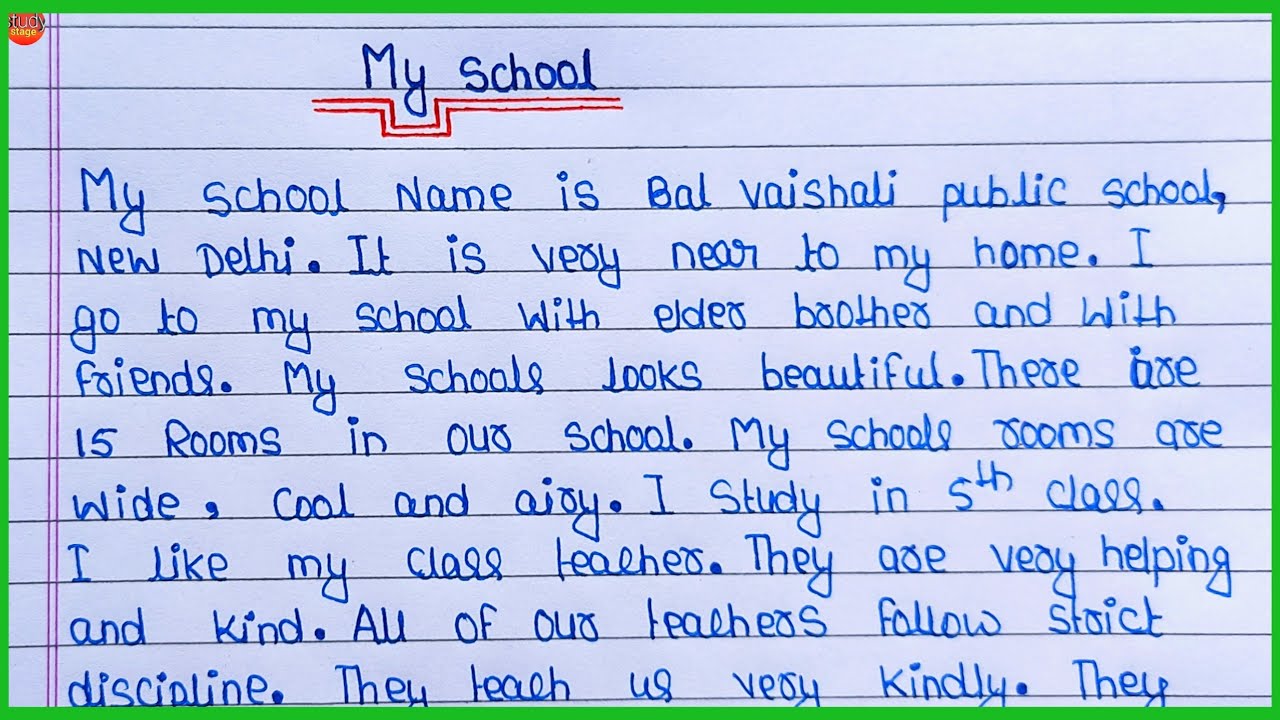 study
stage
My School
My school Name is Bal Vaishali public school,
New Delhi. It is very near to my home. I
go to my school with elder brother and with
friends. My schools looks beautiful. There are
15 Rooms in our school. My schools rooms are
wide, cool and airy. I study in 5th class.
I like my class teacher. They are very helping
and kind. All of our teachers follow strict
discipline. They teach us very kindly. They